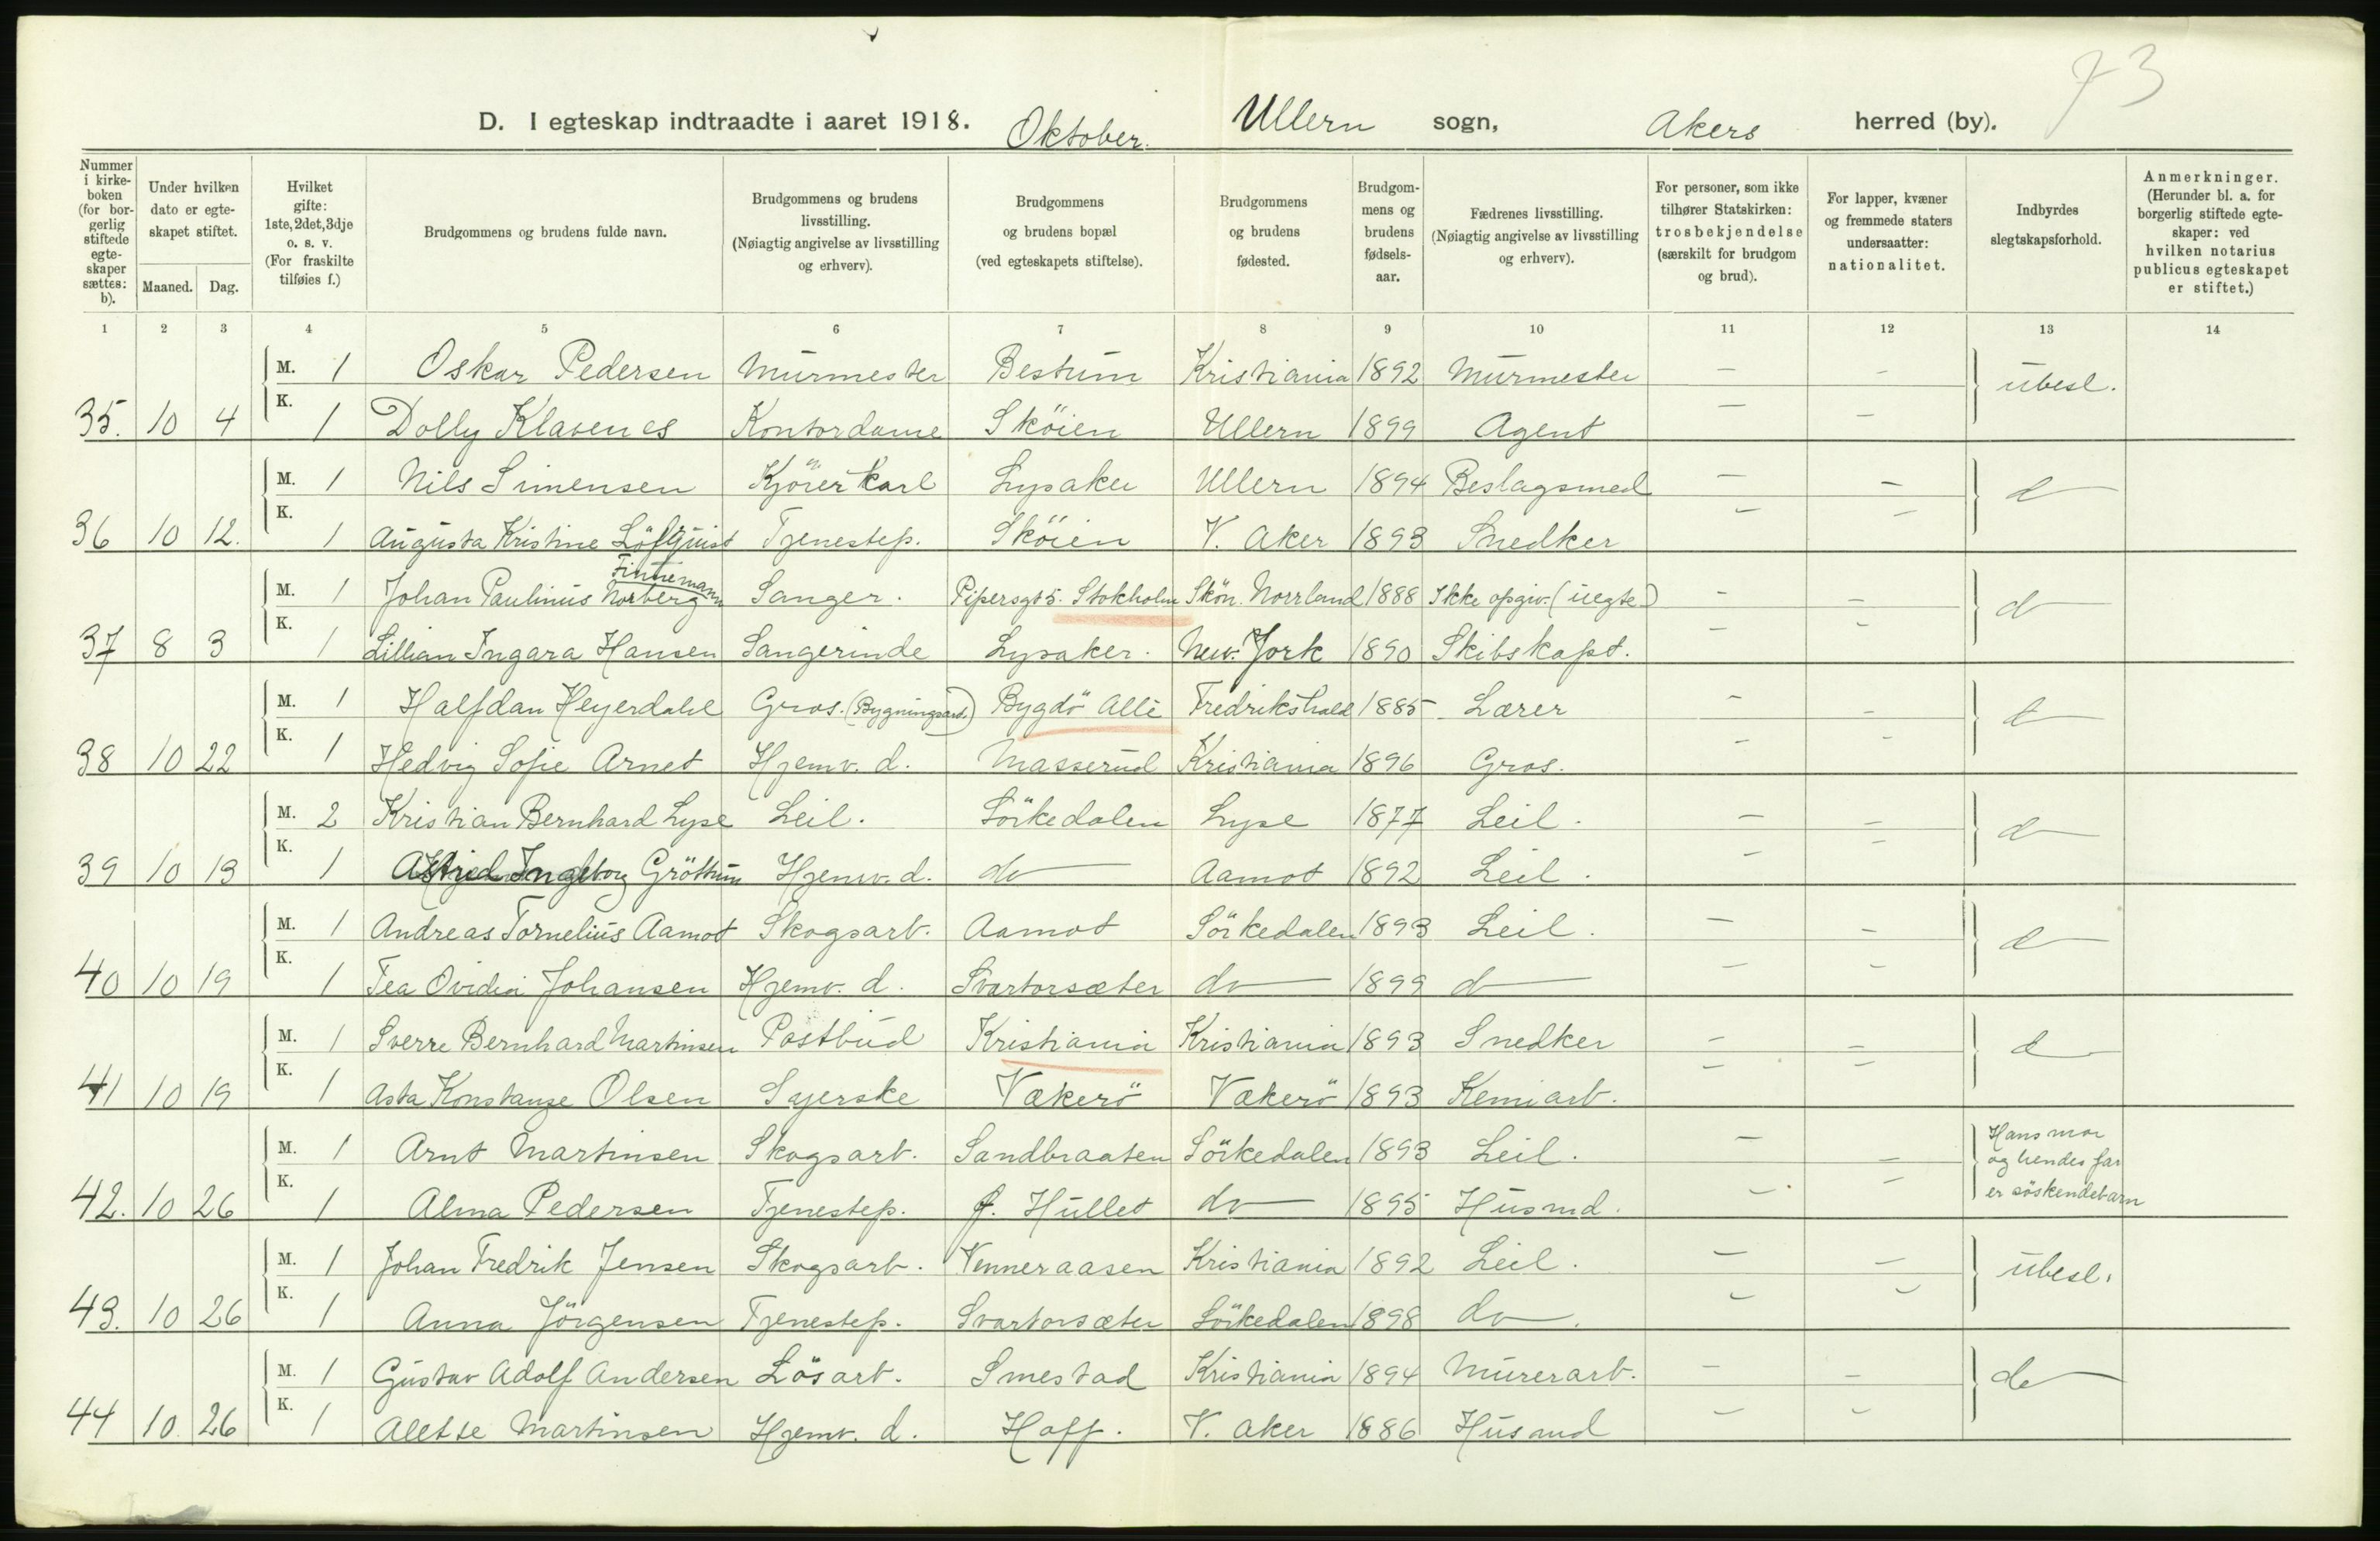 73
D. I egteskap indtraadte i aaret 1918. Oktober. Ullern sogn, Akers herred (by).
Nummer i kirke-boken (for bor-gerlig stiftede egte-skaper sættes: b).
Under hvilken dato er egte-skapet stiftet.
Maaned. Dag.
Hvilket gifte: 1ste, 2det, 3dje o. s. v. (For fraskilte tilføies f.)
Brudgommens og brudens fulde navn.
Brudgommens og brudens livsstilling. (Nøiagtig angivelse av livsstilling og erhverv).
Brudgommens og brudens bopæl (ved egteskapets stiftelse).
Brudgommens og brudens fødested.
Brudgom-mens og brudens fødsels-aar.
Fædrenes livsstilling. (Nøiagtig angivelse av livsstilling og erhverv).
For personer, som ikke tilhører Statskirken: trosbekjendelse (særskilt for brudgom og brud).
For lapper, kvæner og fremmede staters undersaatter: nationalitet.
Indbyrdes slegtskapsforhold.
Anmerkninger. (Herunder bl. a. for borgerlig stiftede egte-skaper: ved hvilken notarius publicus egteskapet er stiftet.)
1 2 3 4 5 6 7 8 9 10 11 12 13 14
M. 1 Oskar Pedersen Murmester Bestum Kristiania 1892 Murmester — — ubesl.
35. 10 4 K. 1 Dolly Klavenes Kontordame Sköien Ullern 1899 Agent — —
M. 1 Nils Simensen Kjörerkarl Lysaker Ullern 1894 Beslagsmed — — d
36 10 12. K. 1 Augusta Kristine Löfquist Tjenestep. Sköien V. Aker 1893 Snedker — —
Finnemann
M. 1 Johan Paulinus Norberg Sanger. Pipersgt 5. Stokholm Skön. Norrland 1888 Ikke opgiv. (uegte) — — d
37 8 3 K. 1 Lillian Ingara Hansen Sangerinde Lysaker. New. York 1890 Skibskapt. — —
M. 1 Halfdan Heyerdahl Gros. (Bygningsart.) Bygdö Allé Fredrikshald 1885 Lærer — — d
38 10 22 K. 1 Hedvig Sofie Arnet Hjemv. d. Masserud Kristiania 1896 Gros. — —
M. 2 Kristian Bernhard Lyse Leil. Sörkedalen Lyse 1877 Leil. — — d
39 10 13 K. 1 Astrid Ingeborg Gröttum Hjemv. d. do Aamot 1892 Leil. — —
M. 1 Andreas Tornelius Aamot Skogsarb. Aamot Sörkedalen 1893 Leil. — — d
40 10 19 K. 1 Tea Ovidia Johansen Hjemv. d. Svartorsæter do 1899 d — —
M. 1 Sverre Bernhard Martinsen Postbud Kristiania Kristiania 1893 Snedker — — d
41 10 19 K. 1 Asta Konstanze Olsen Syerske Vækerö Vækerö 1893 Kemiarb. — —
M. 1 Arnt Martinsen Skogsarb. Sandbraaten Sörkedalen 1893 Leil. — — Hans mor og hendes far er söskendebarn
42. 10 26 K. 1 Alma Pedersen Tjenestep. Hullet do 1895 Husmd. — —
M. 1 Johan Fredrik Jensen Skogsarb. Venneraasen Kristiania 1892 Leil. — — ubesl.
43. 10 26 K. 1 Anna Jörgensen Tjenestep. Svartorsæter Sörkedalen 1898 do. — —
M. 1 Gustav Adolf Andersen Lösarb. Smestad Kristiania 1894 Murerarb. — — do
44 10. 26 K. 1 Alette Martinsen Hjemv. d. Hoff. V. Aker 1886 Husmd — —